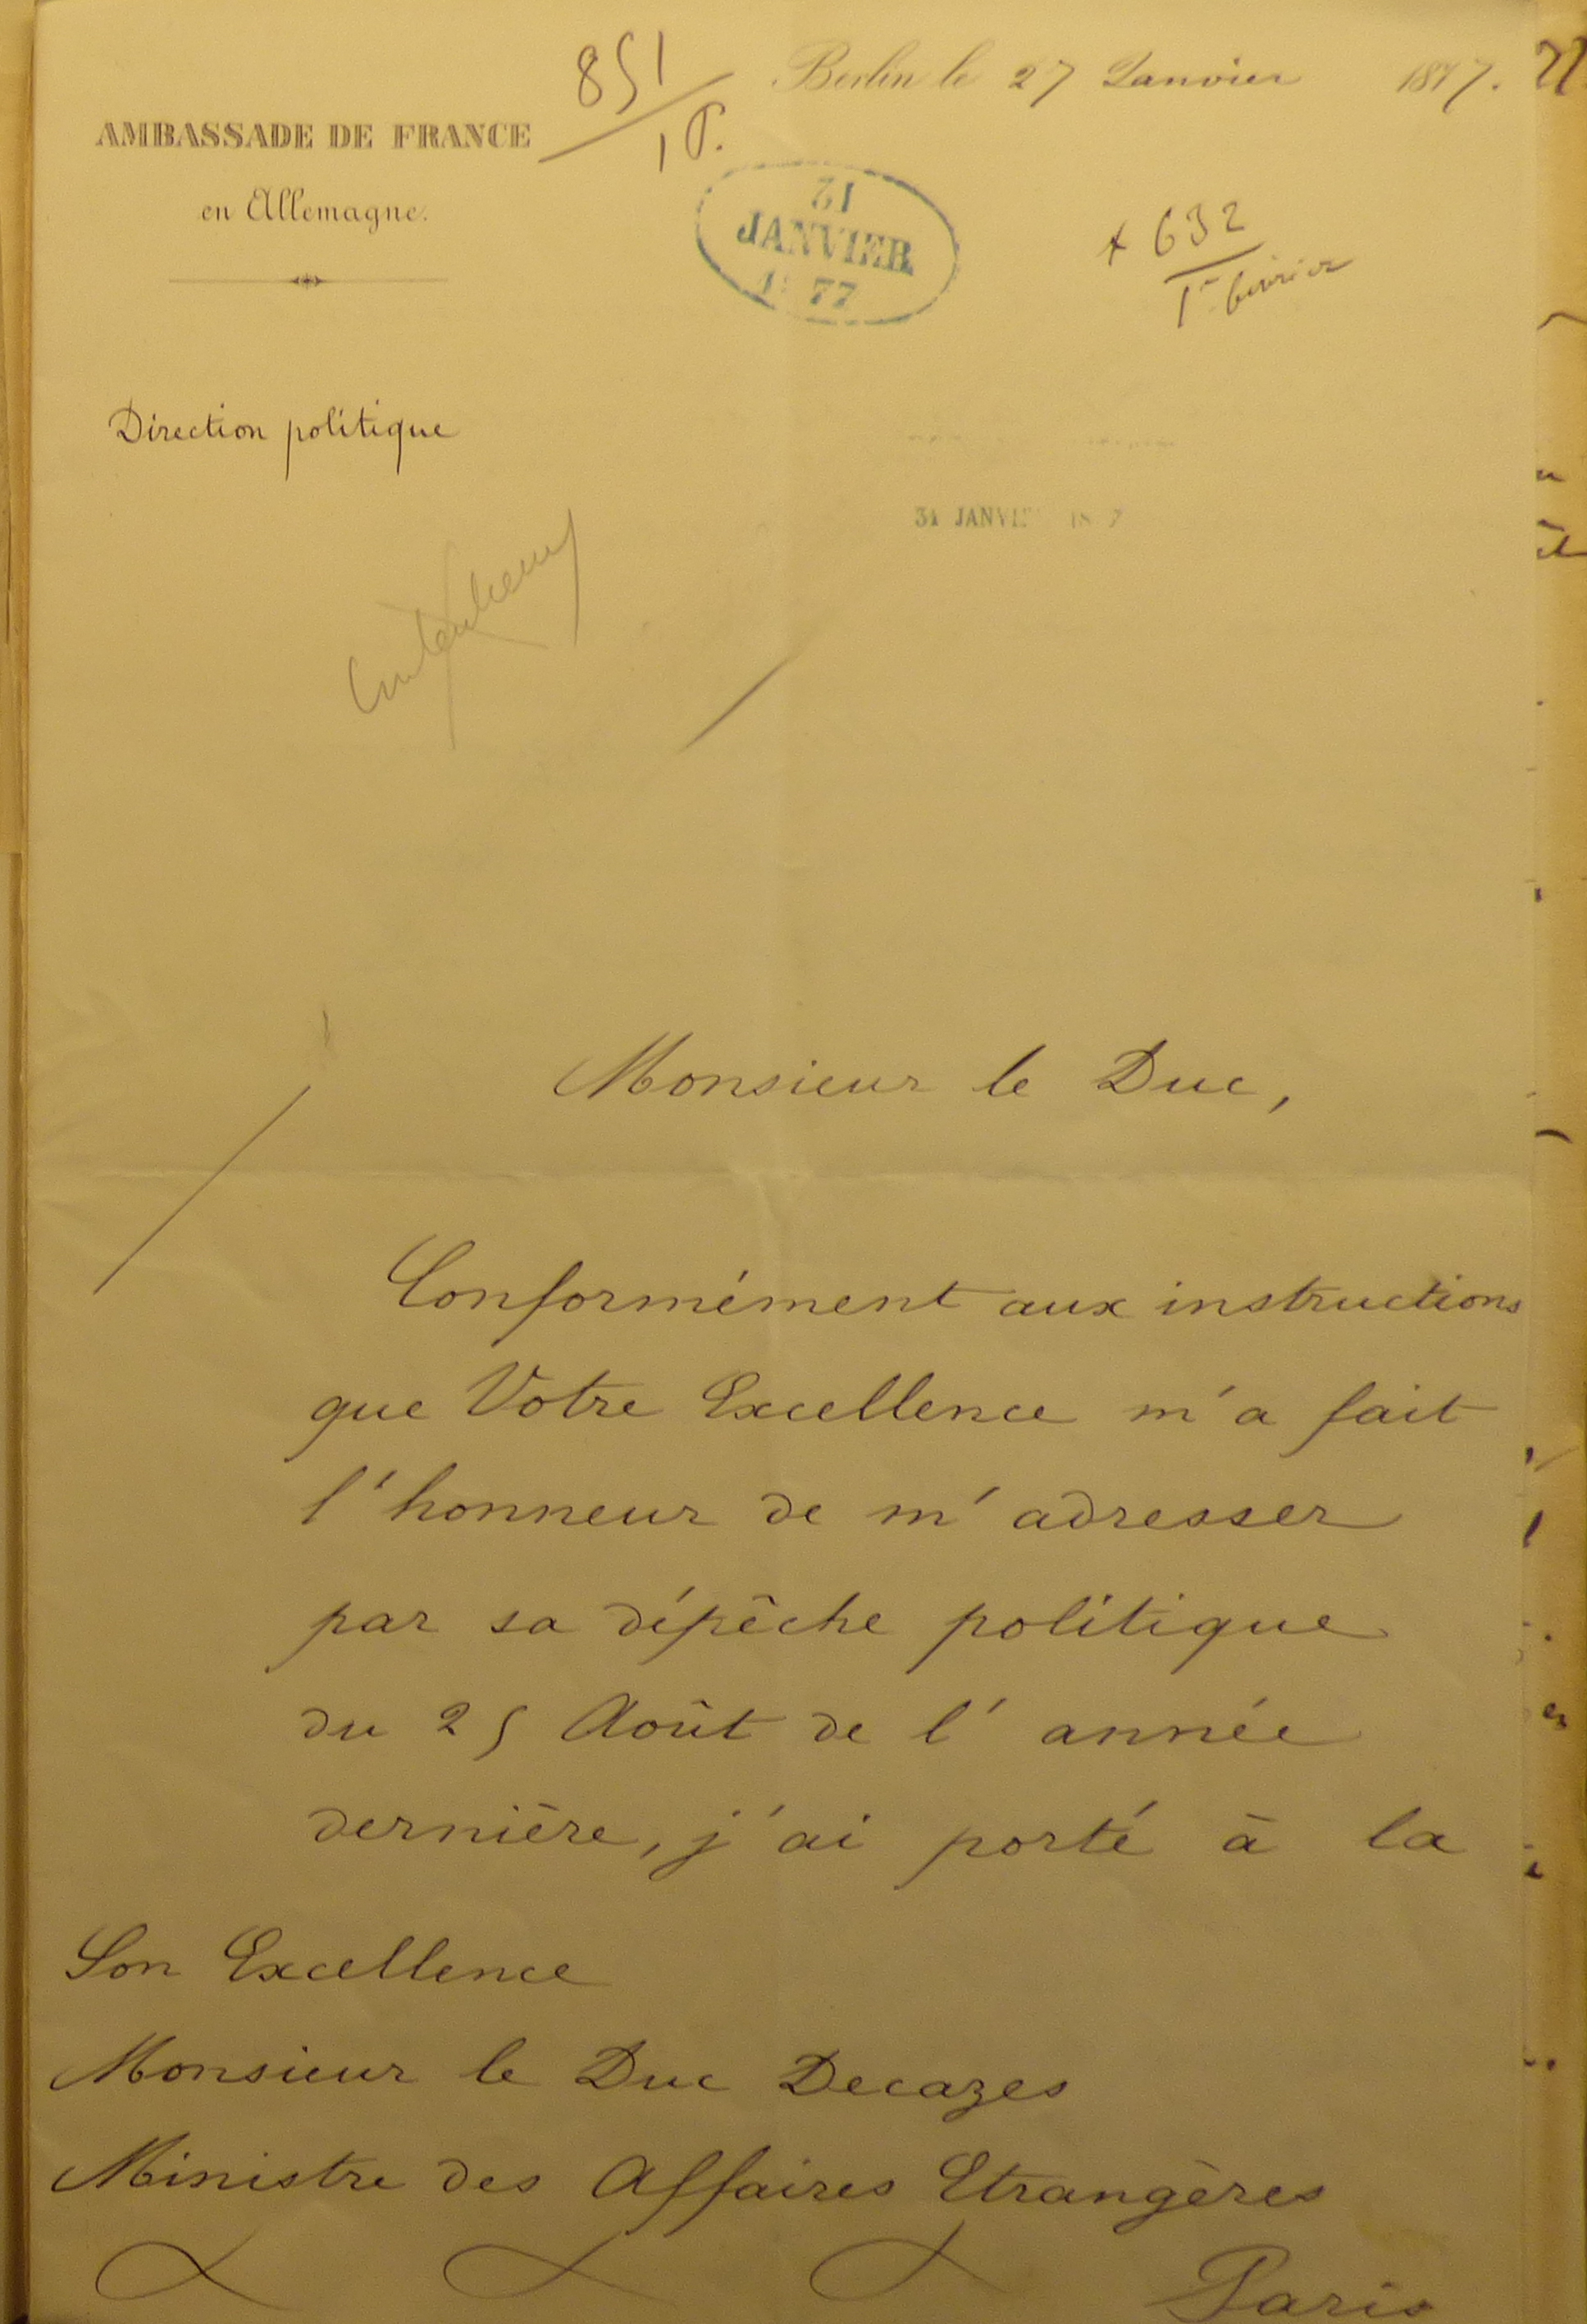 851
1 P.
Berlin le 27 Janvier 1877.
AMBASSADE DE FRANCE
en Allemagne.
31
JANVIER
77
632
1er février
Direction politique
31 JANVI
Monsieur le Duc,
Conformément aux instructions
que Votre Excellence m'a fait
l'honneur de m'adresser
par sa dépêche politique
du 25 Août de l'année
dernière, j'ai porté à la
Son Excellence
Monsieur le Duc Decazes
Ministre des Affaires Etrangères
Paris